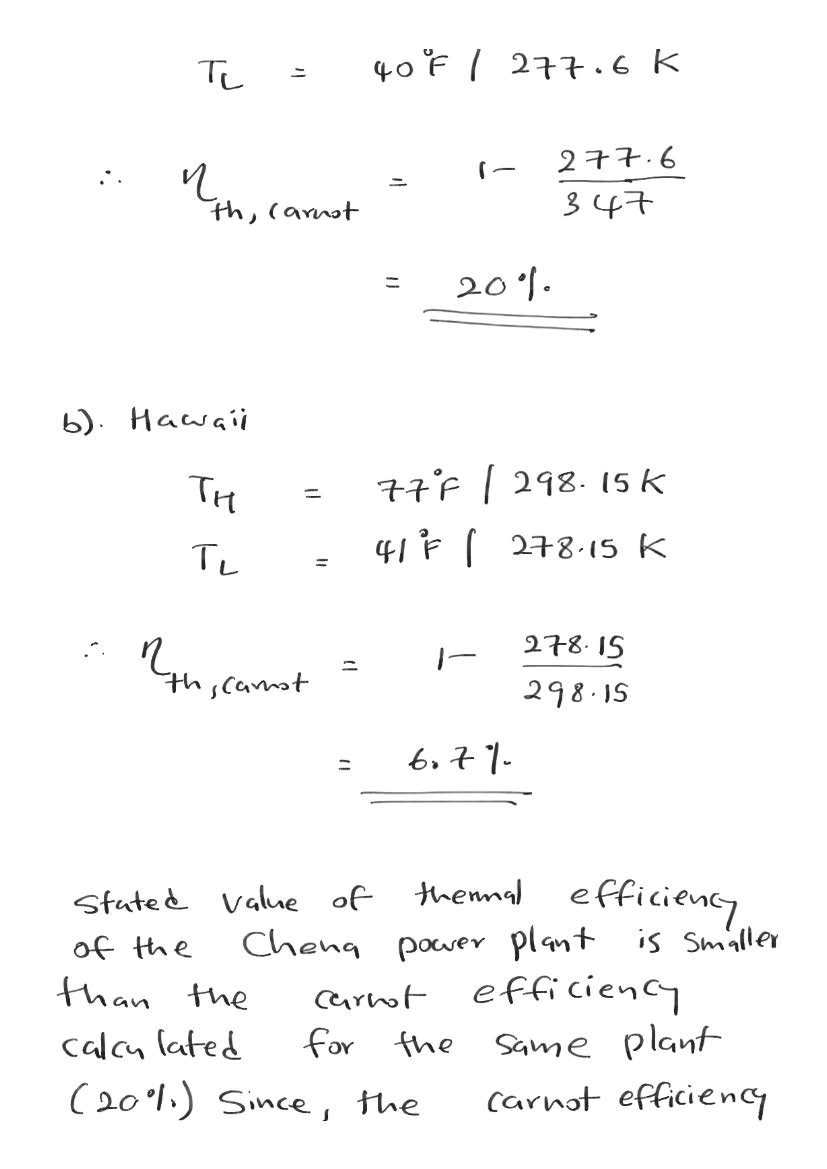 T_L = 40°F / 277.6 K
∴ η_th, carnot = 1 - 277.6 / 347
= 20%
b). Hawaii
T_H = 77°F / 298.15 K
T_L = 41°F / 278.15 K
∴ η_th, carnot = 1 - 278.15 / 298.15
= 6.7%
Stated value of thermal efficiency
of the Chena power plant is smaller
than the carnot efficiency
calculated for the same plant
(20%) Since, the carnot efficiency